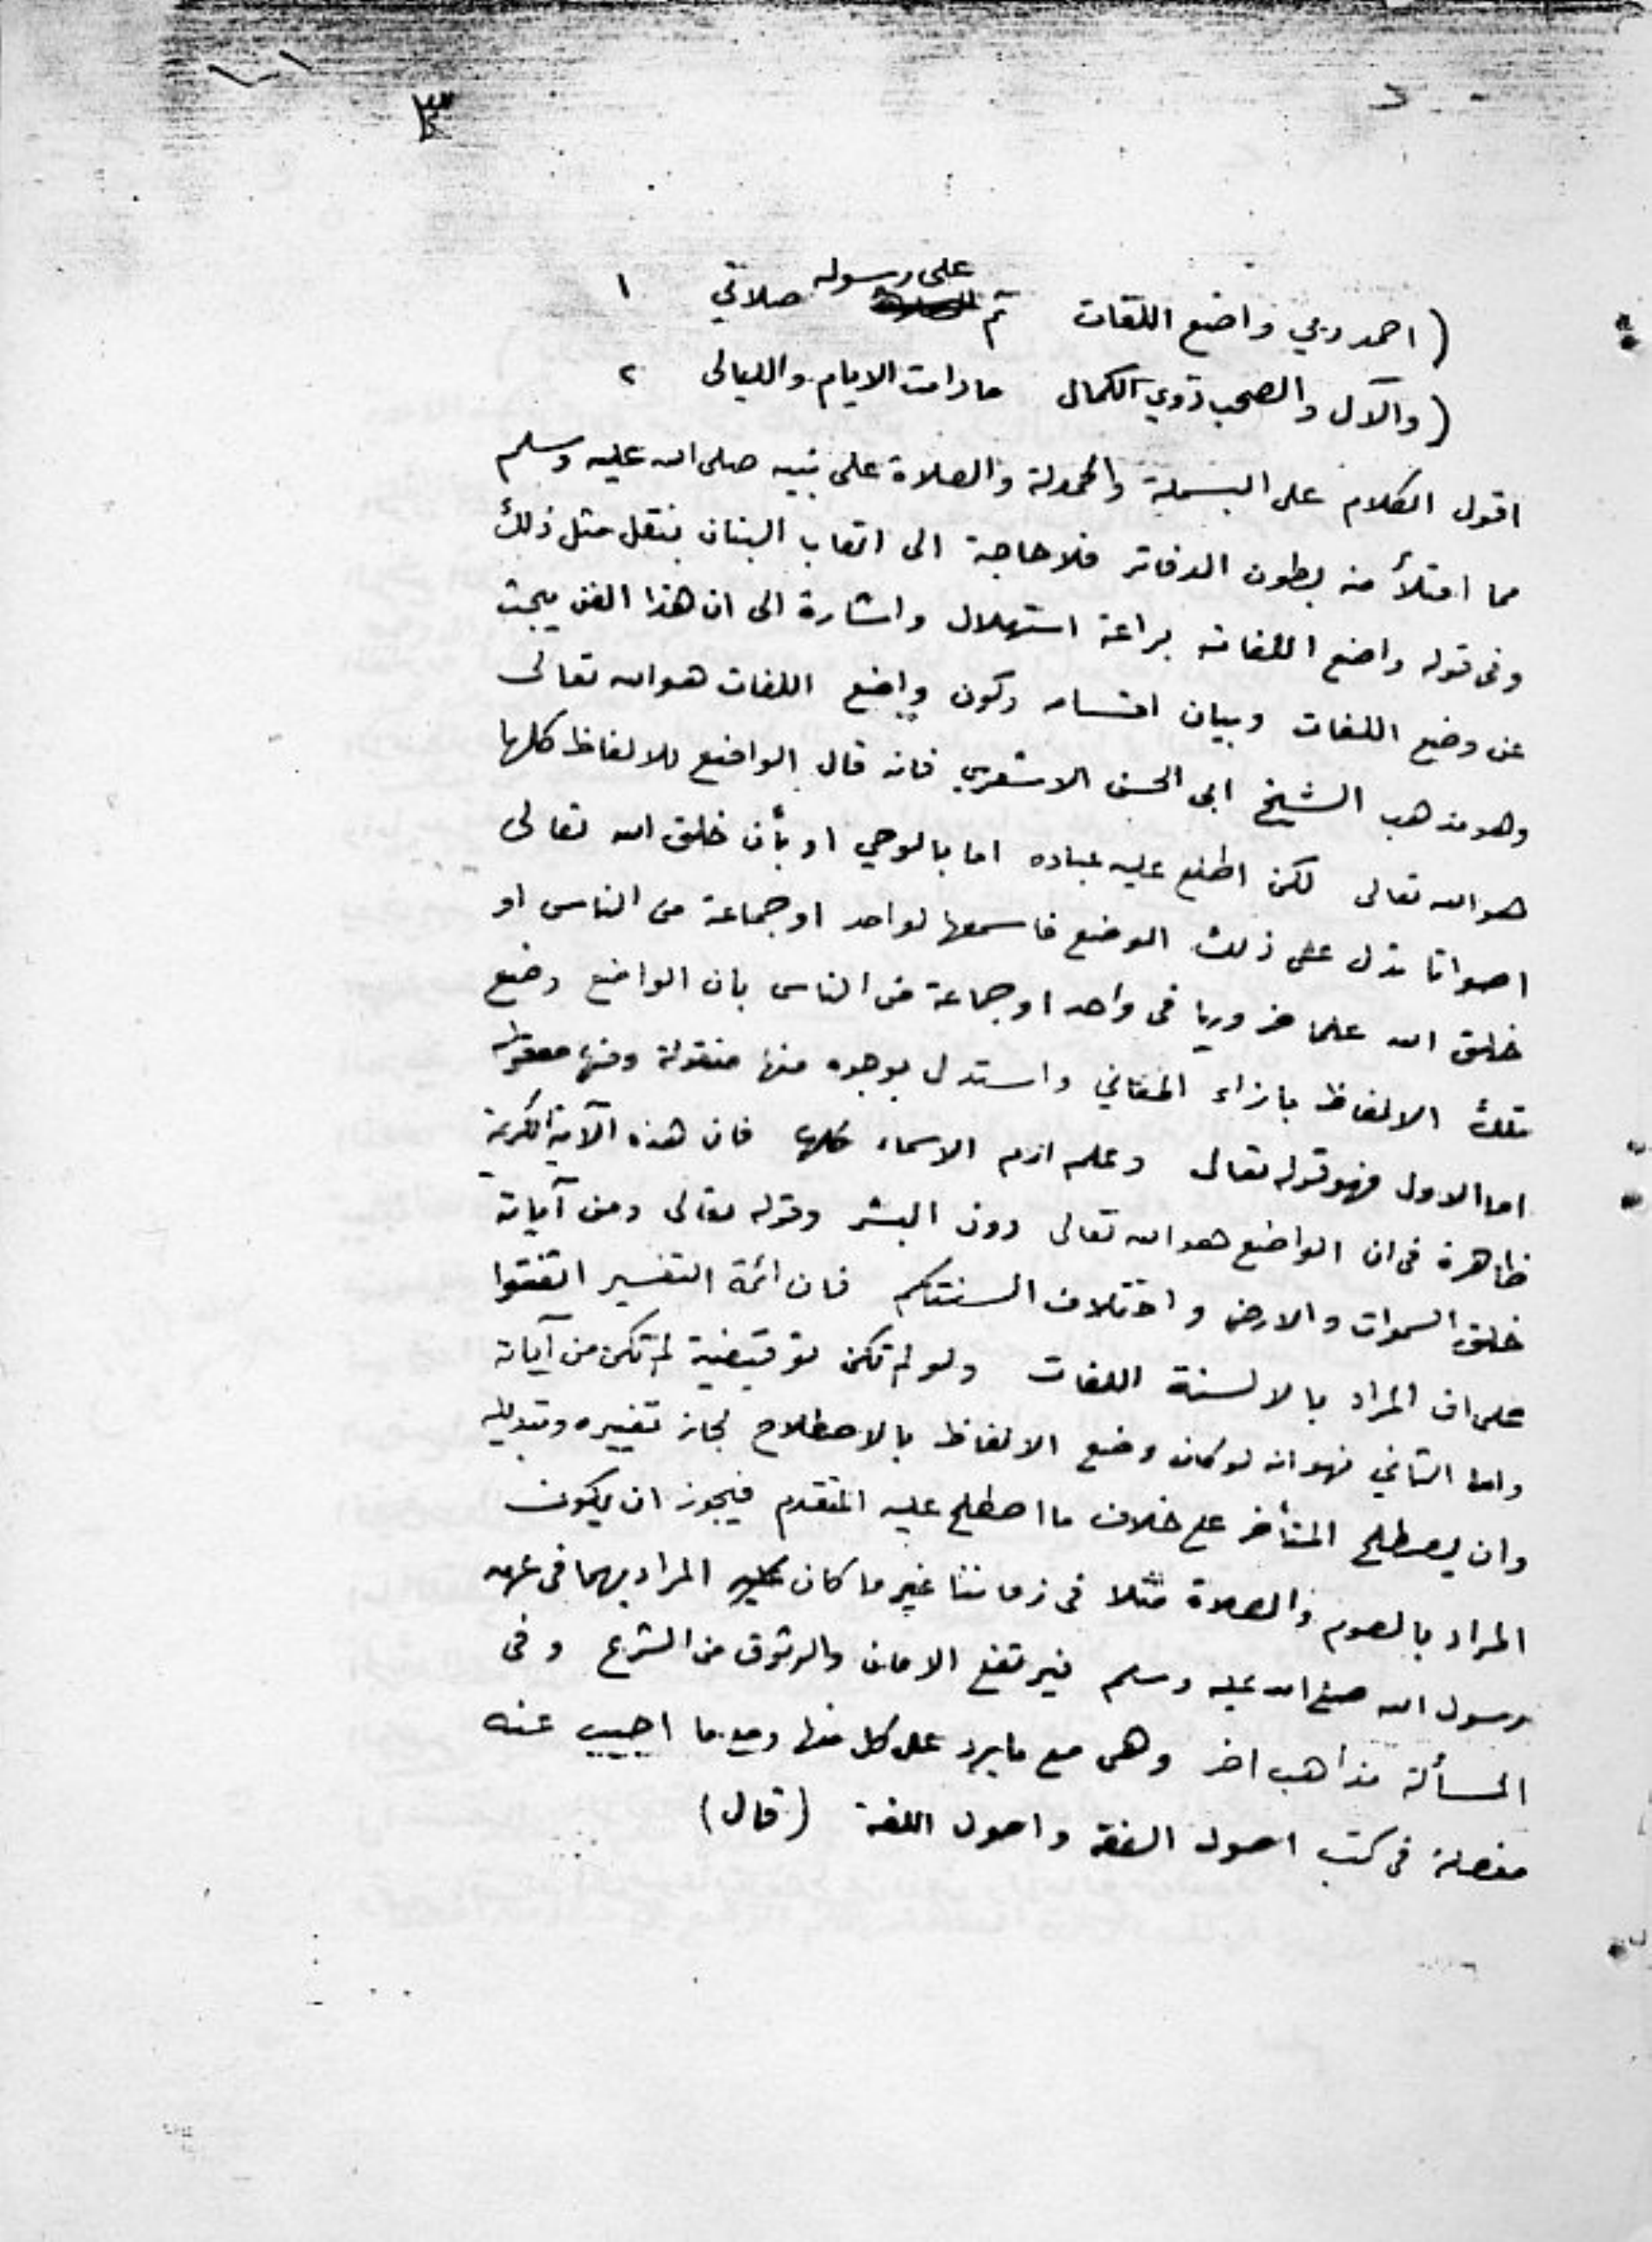 ٣
(احمد ربي واضع اللغات ثم على رسوله صلاتي ١
(والآل والصحب ذوي الكمال مادامت الايام والليالى ٢
اقول الكلام على البسملة والحمدلة والصلاة على نبيه صلى الله عليه وسلم
مما امتلأ منه بطون الدفاتر فلا حاجة الى اتعاب البنان بنقل مثل ذلك
وفى قوله واضع اللغات براعة استهلال واشارة الى ان هذا الفن يبحث
عن وضع اللغات وبيان اقسامه وكون واضع اللغات هو الله تعالى
وهو مذهب الشيخ ابى الحسن الاشعري فانه قال الواضع للالفاظ كلها
هو الله تعالى لكن اطلع عليه عباده اما بالوحي او بأن خلق الله تعالى
اصواتا تدل على ذلك الوضع فاسمعها لواحد او جماعة من الناس او
خلق الله علما ضروريا فى واحد او جماعة من الناس بان الواضع وضع
تلك الالفاظ بازاء المعاني واستدل بوجوه منها منقولة ومنها معقولة
اما الاول فهو قوله تعالى وعلم ادم الاسماء كلها فان هذه الآية الكريمة
ظاهرة فى ان الواضع هو الله تعالى دون البشر وقوله تعالى ومن آياته
خلق السموات والارض واختلاف السنتكم فان ائمة التفسير اتفقوا
على ان المراد بالالسنة اللغات ولو لم تكن توقيفية لم تكن من آياته
واما الثاني فهو انه لو كان وضع الالفاظ بالاصطلاح لجاز تغييره وتبديله
وان يصطلح المتأخر على خلاف ما اصطلح عليه المتقدم فيجوز ان يكون
المراد بالصوم والصلاة مثلا فى زماننا غير ما كان المراد بهما فى عهد
رسول الله صلى الله عليه وسلم فيرتفع الامان والوثوق من الشرع وفى
المسألة مذاهب اخر وهى مع ما يرد على كل منها ومع ما اجيب عنه
مفصلة فى كتب اصول الفقه واصول اللغة (قال)